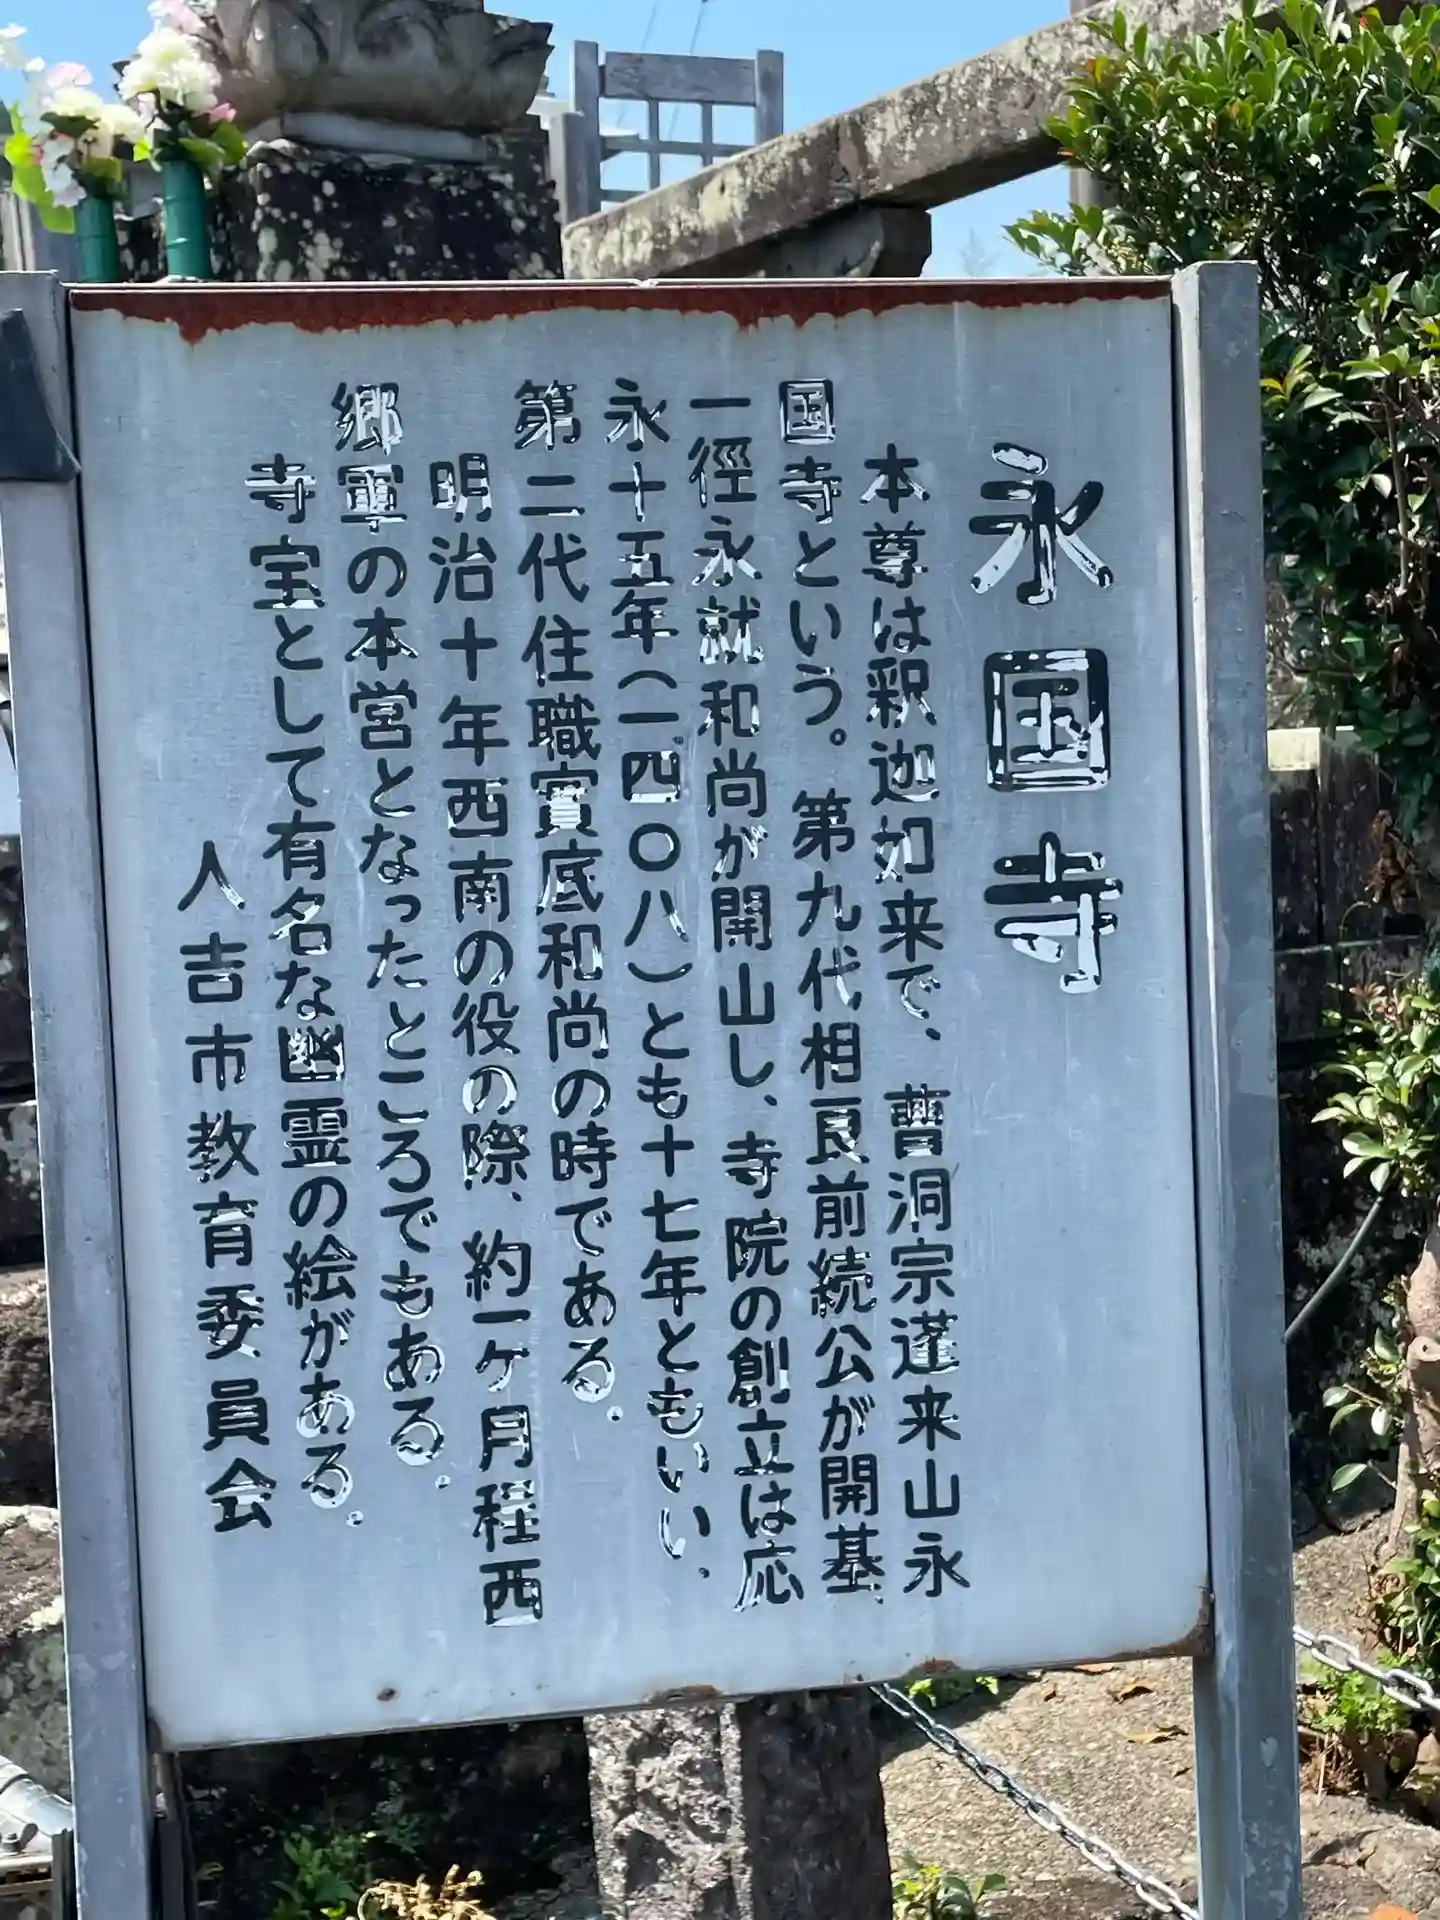 永国寺
本尊は釈迦如来で、曹洞宗蓬来山永
国寺という。第九代相良前続公が開基
一徑永就和尚が開山し、寺院の創立は応
永十五年(一四〇八)とも十七年ともいい、
第二代住職實底和尚の時である。
明治十年西南の役の際、約一ヶ月程西
郷軍の本営となったところでもある。
寺宝として有名な幽霊の絵がある。
人吉市教育委員会